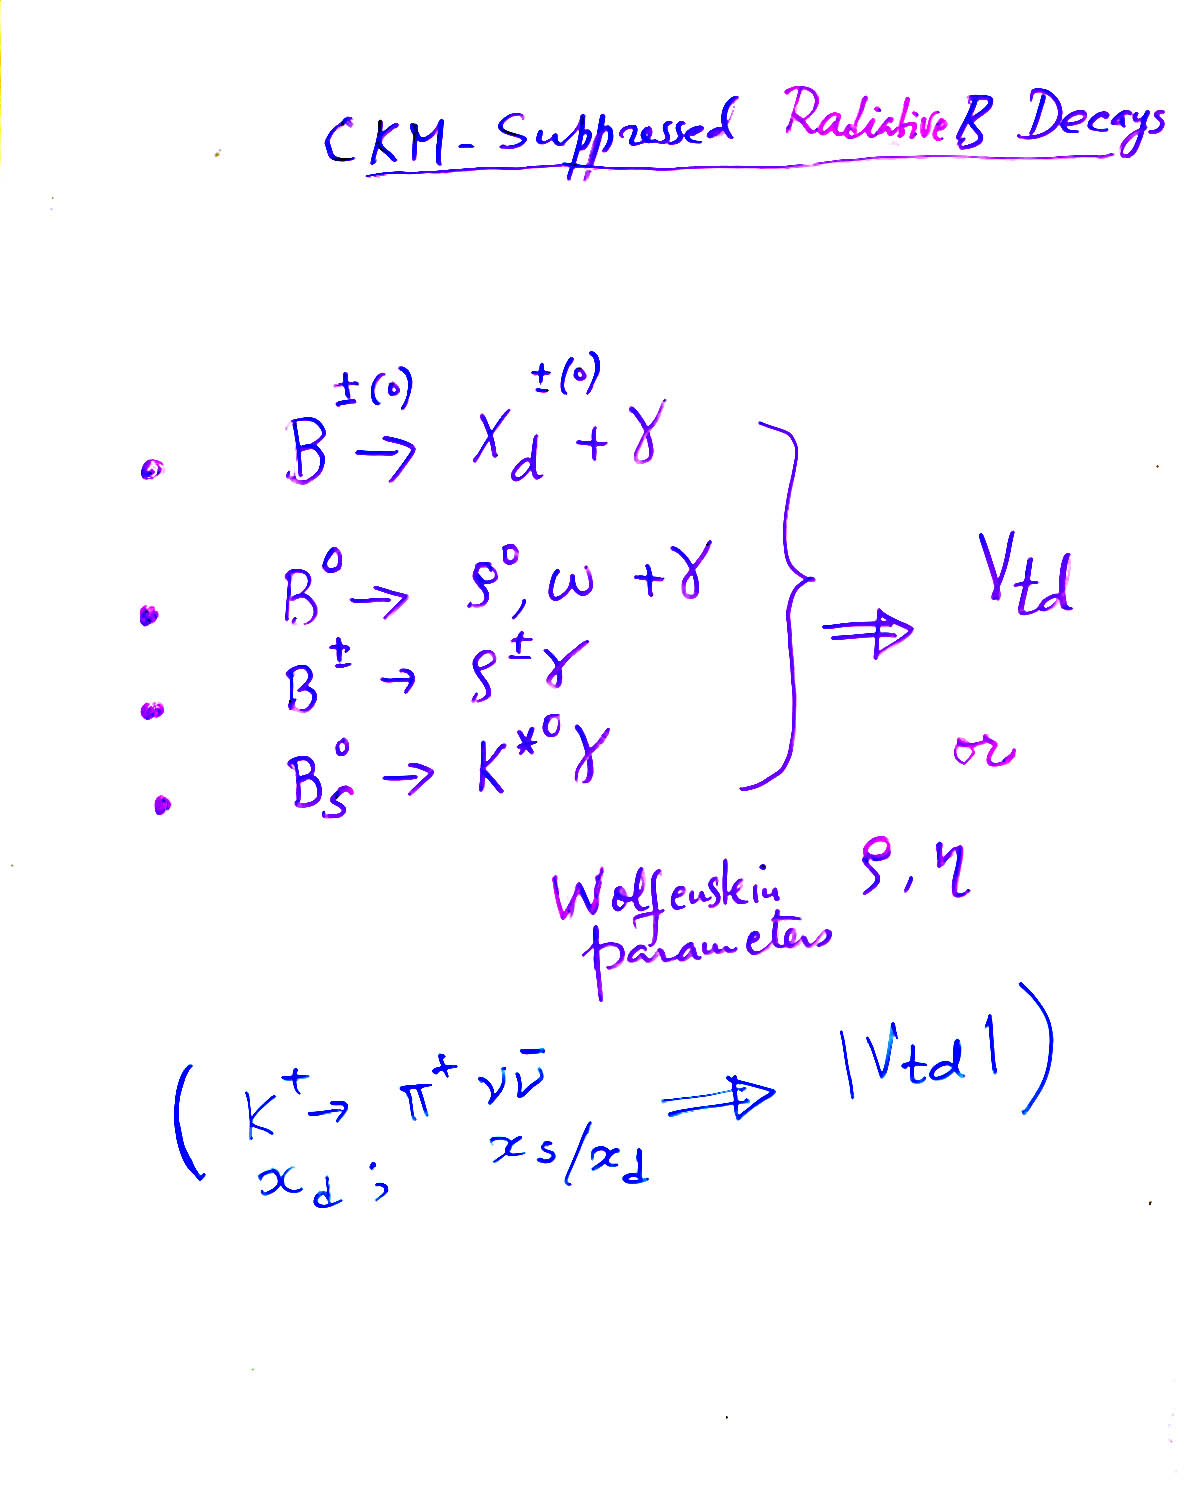 CKM - Suppressed Radiative B Decays
• B^±(0) → X_d^±(0) + γ
• B^0 → ρ^0, ω + γ
⇒ V_td
• B^± → ρ^± γ
• B_s^0 → K^*0 γ
or
Wolfenstein ρ, η
parameters
( K^+ → π^+ ν ν̄ ⇒ |V_td| )
x_d ; x_s/x_d